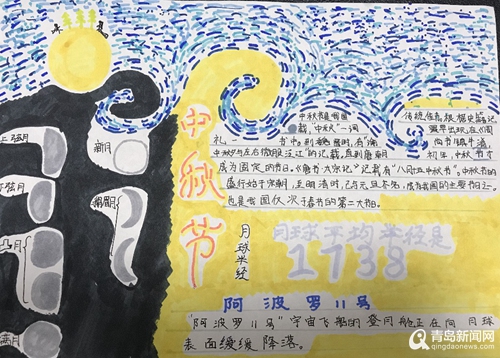 中秋节
上弦月
新月
下弦月
凸月
满月
中秋节是我国
传统佳节,根据史籍记
载,"中秋"一词
最早出现在《周
礼》一书中。到魏晋时,有"谕
尚书镇牛渚,
中秋夕与左右微服泛江"的记载。直到唐朝
初年,中秋节才
成为固定的节日。《唐书·太宗记》记载有"八月十五中秋节"。中秋节的
盛行始于宋朝,至明清时,已与元旦齐名,成为我国的主要节日之一。
也是我国仅次于春节的第二大节日。
月球半经
月球平均半经是
1738
阿波罗11号
"阿波罗11号"宇宙飞船的登月舱正在向月球
表面缓缓降落。
青岛新闻网
qingdaonews.com